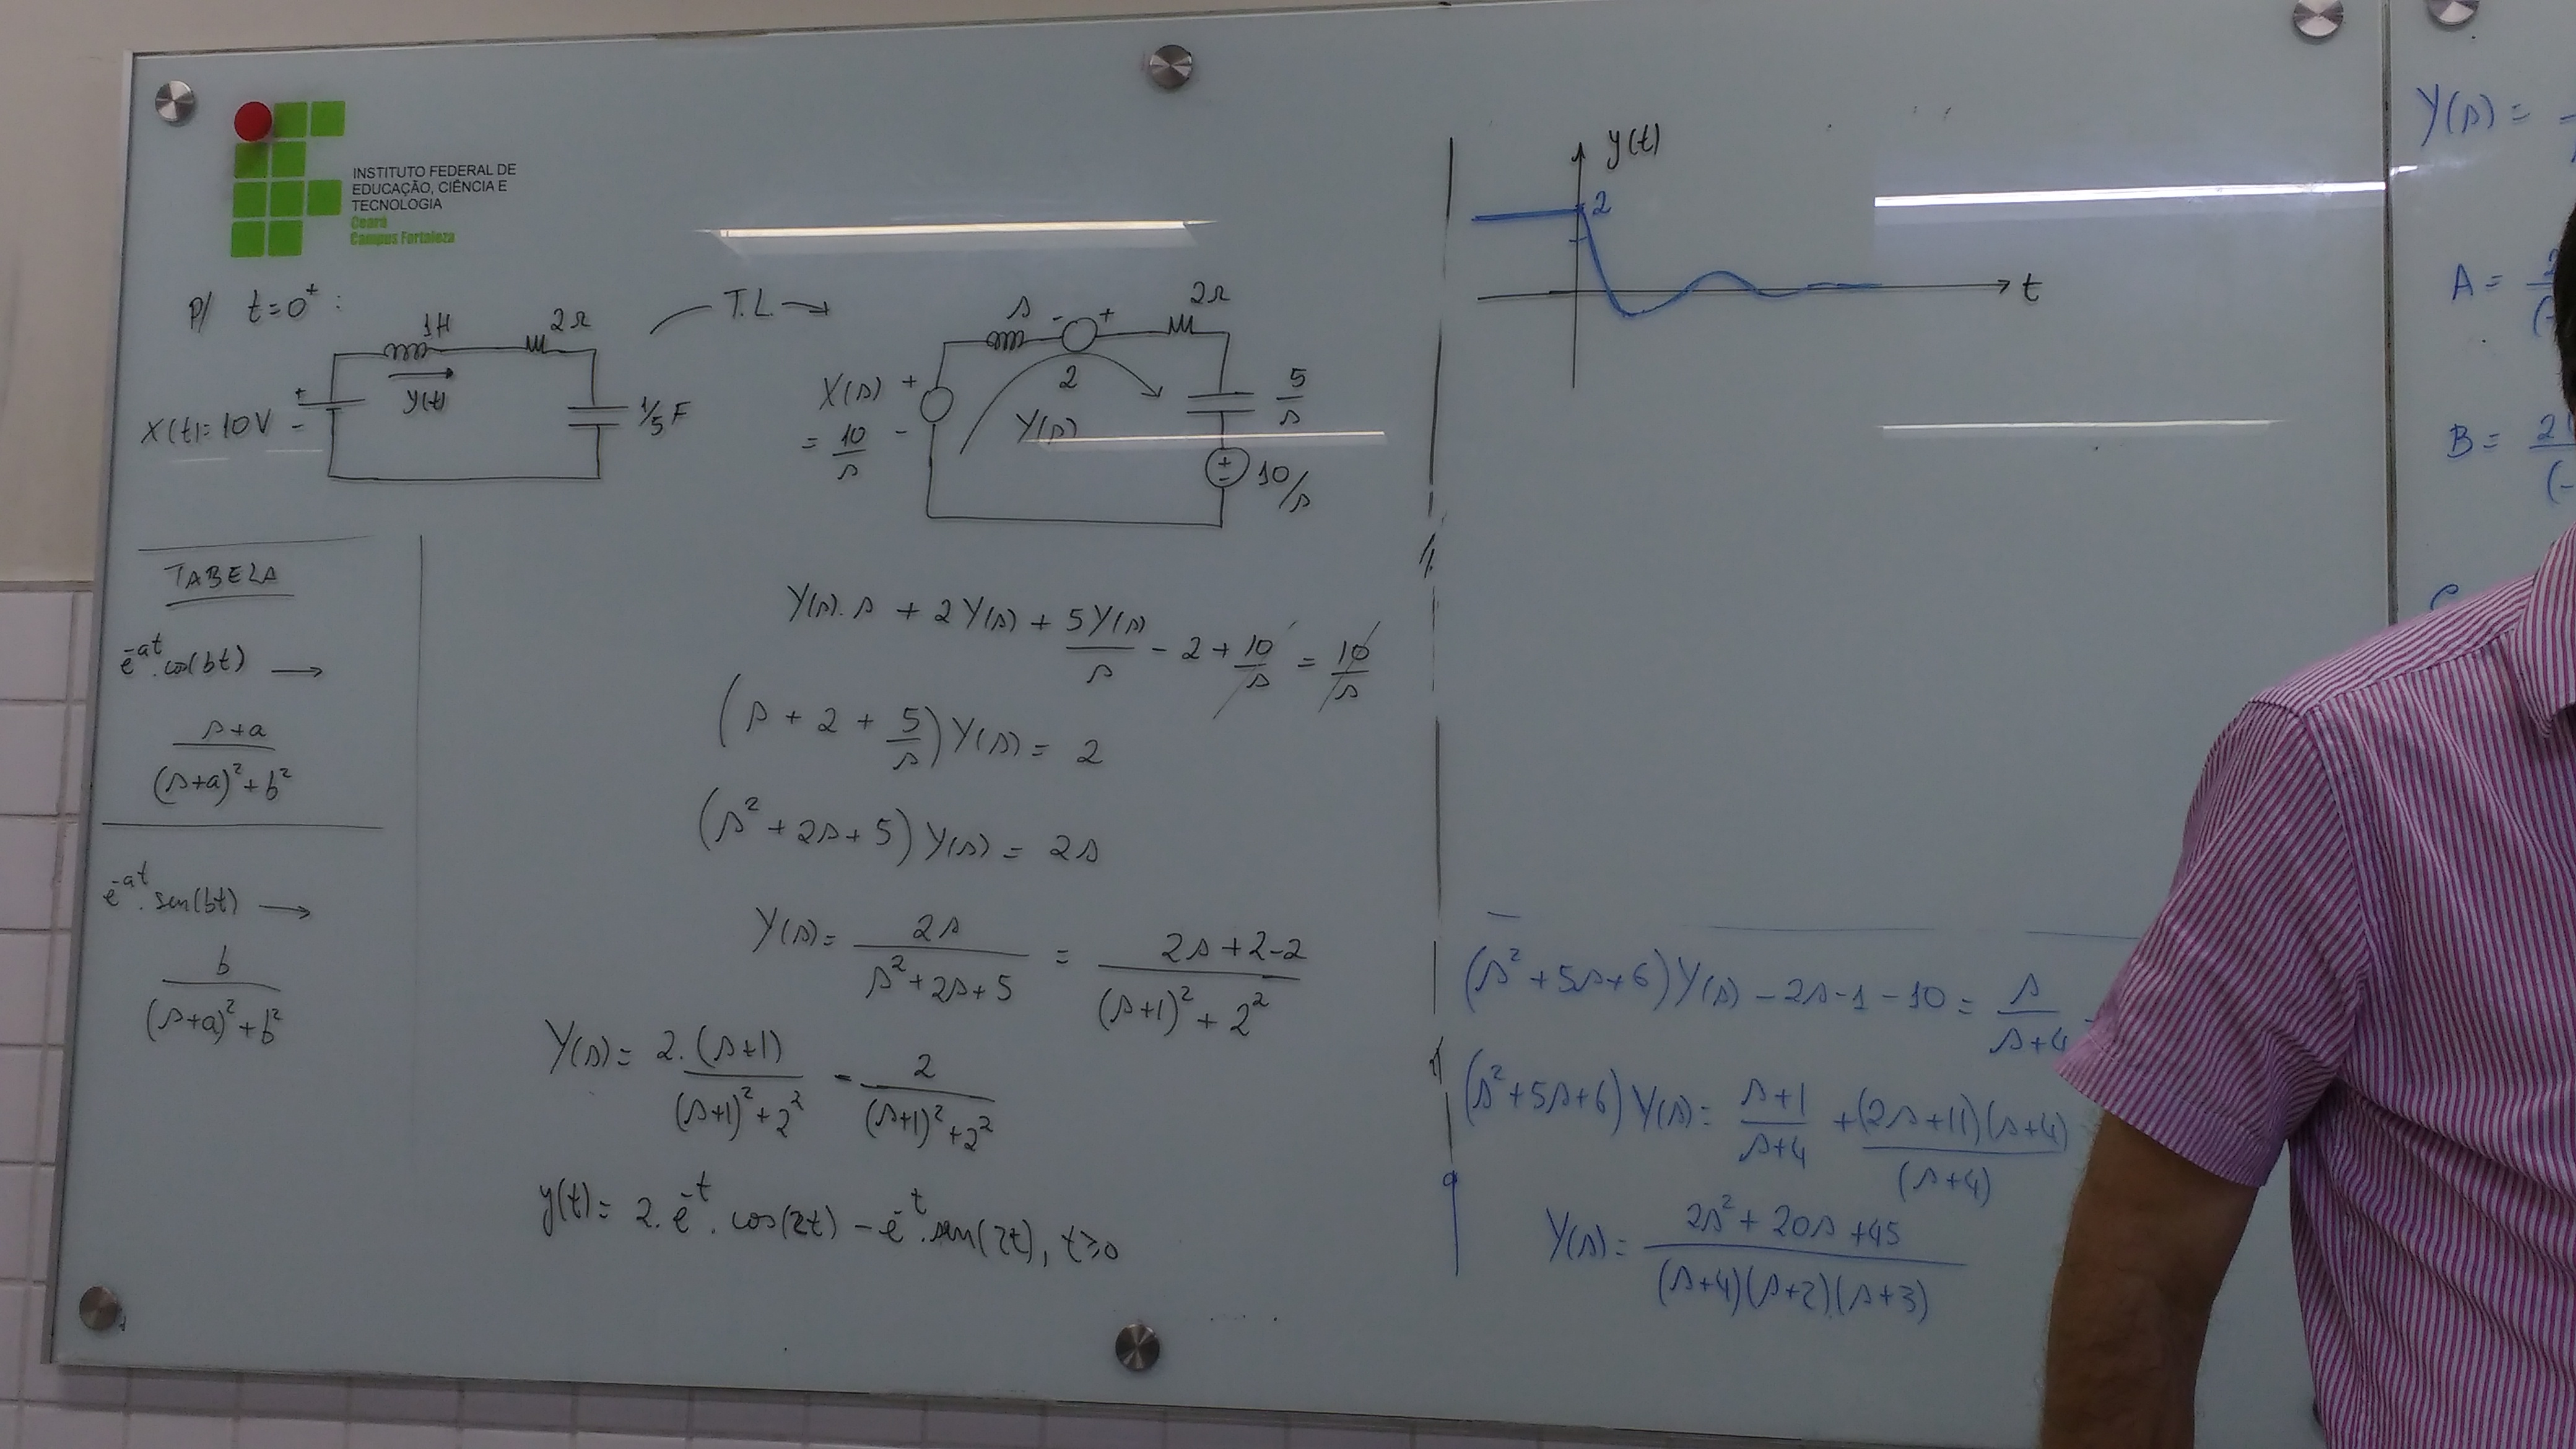 INSTITUTO FEDERAL DE
EDUCAÇÃO, CIÊNCIA E
TECNOLOGIA
Ceará
Campus Fortaleza
P/ t=0⁺:
1H
2Ω
y(t)
X(t)=10V
+
-
1/5 F
T.L.
s
- +
2
2Ω
X(s) +
= 10/s -
Y(s)
5/s
+
-
10/s
TABELA
e^-at . cos(bt) →
(s+a)/((s+a)²+b²)
e^-at . sen(bt) →
b/((s+a)²+b²)
Y(s).s + 2Y(s) + 5Y(s)/s - 2 + 10/s = 10/s
(s + 2 + 5/s) Y(s) = 2
(s² + 2s + 5) Y(s) = 2s
Y(s) = 2s/(s²+2s+5) = (2s+2-2)/((s+1)²+2²)
Y(s) = 2.(s+1)/((s+1)²+2²) - 2/((s+1)²+2²)
y(t) = 2.e^-t . cos(2t) - e^-t . sen(2t), t≥0
y(t)
2
t
(s²+5s+6)Y(s) - 2s-1-10 = s/(s+4)
(s²+5s+6)Y(s) = (s+1)/(s+4) + (2s+11)(s+4)/(s+4)
Y(s) = (2s²+20s+45)/((s+4)(s+2)(s+3))
Y(s) =
A =
B =